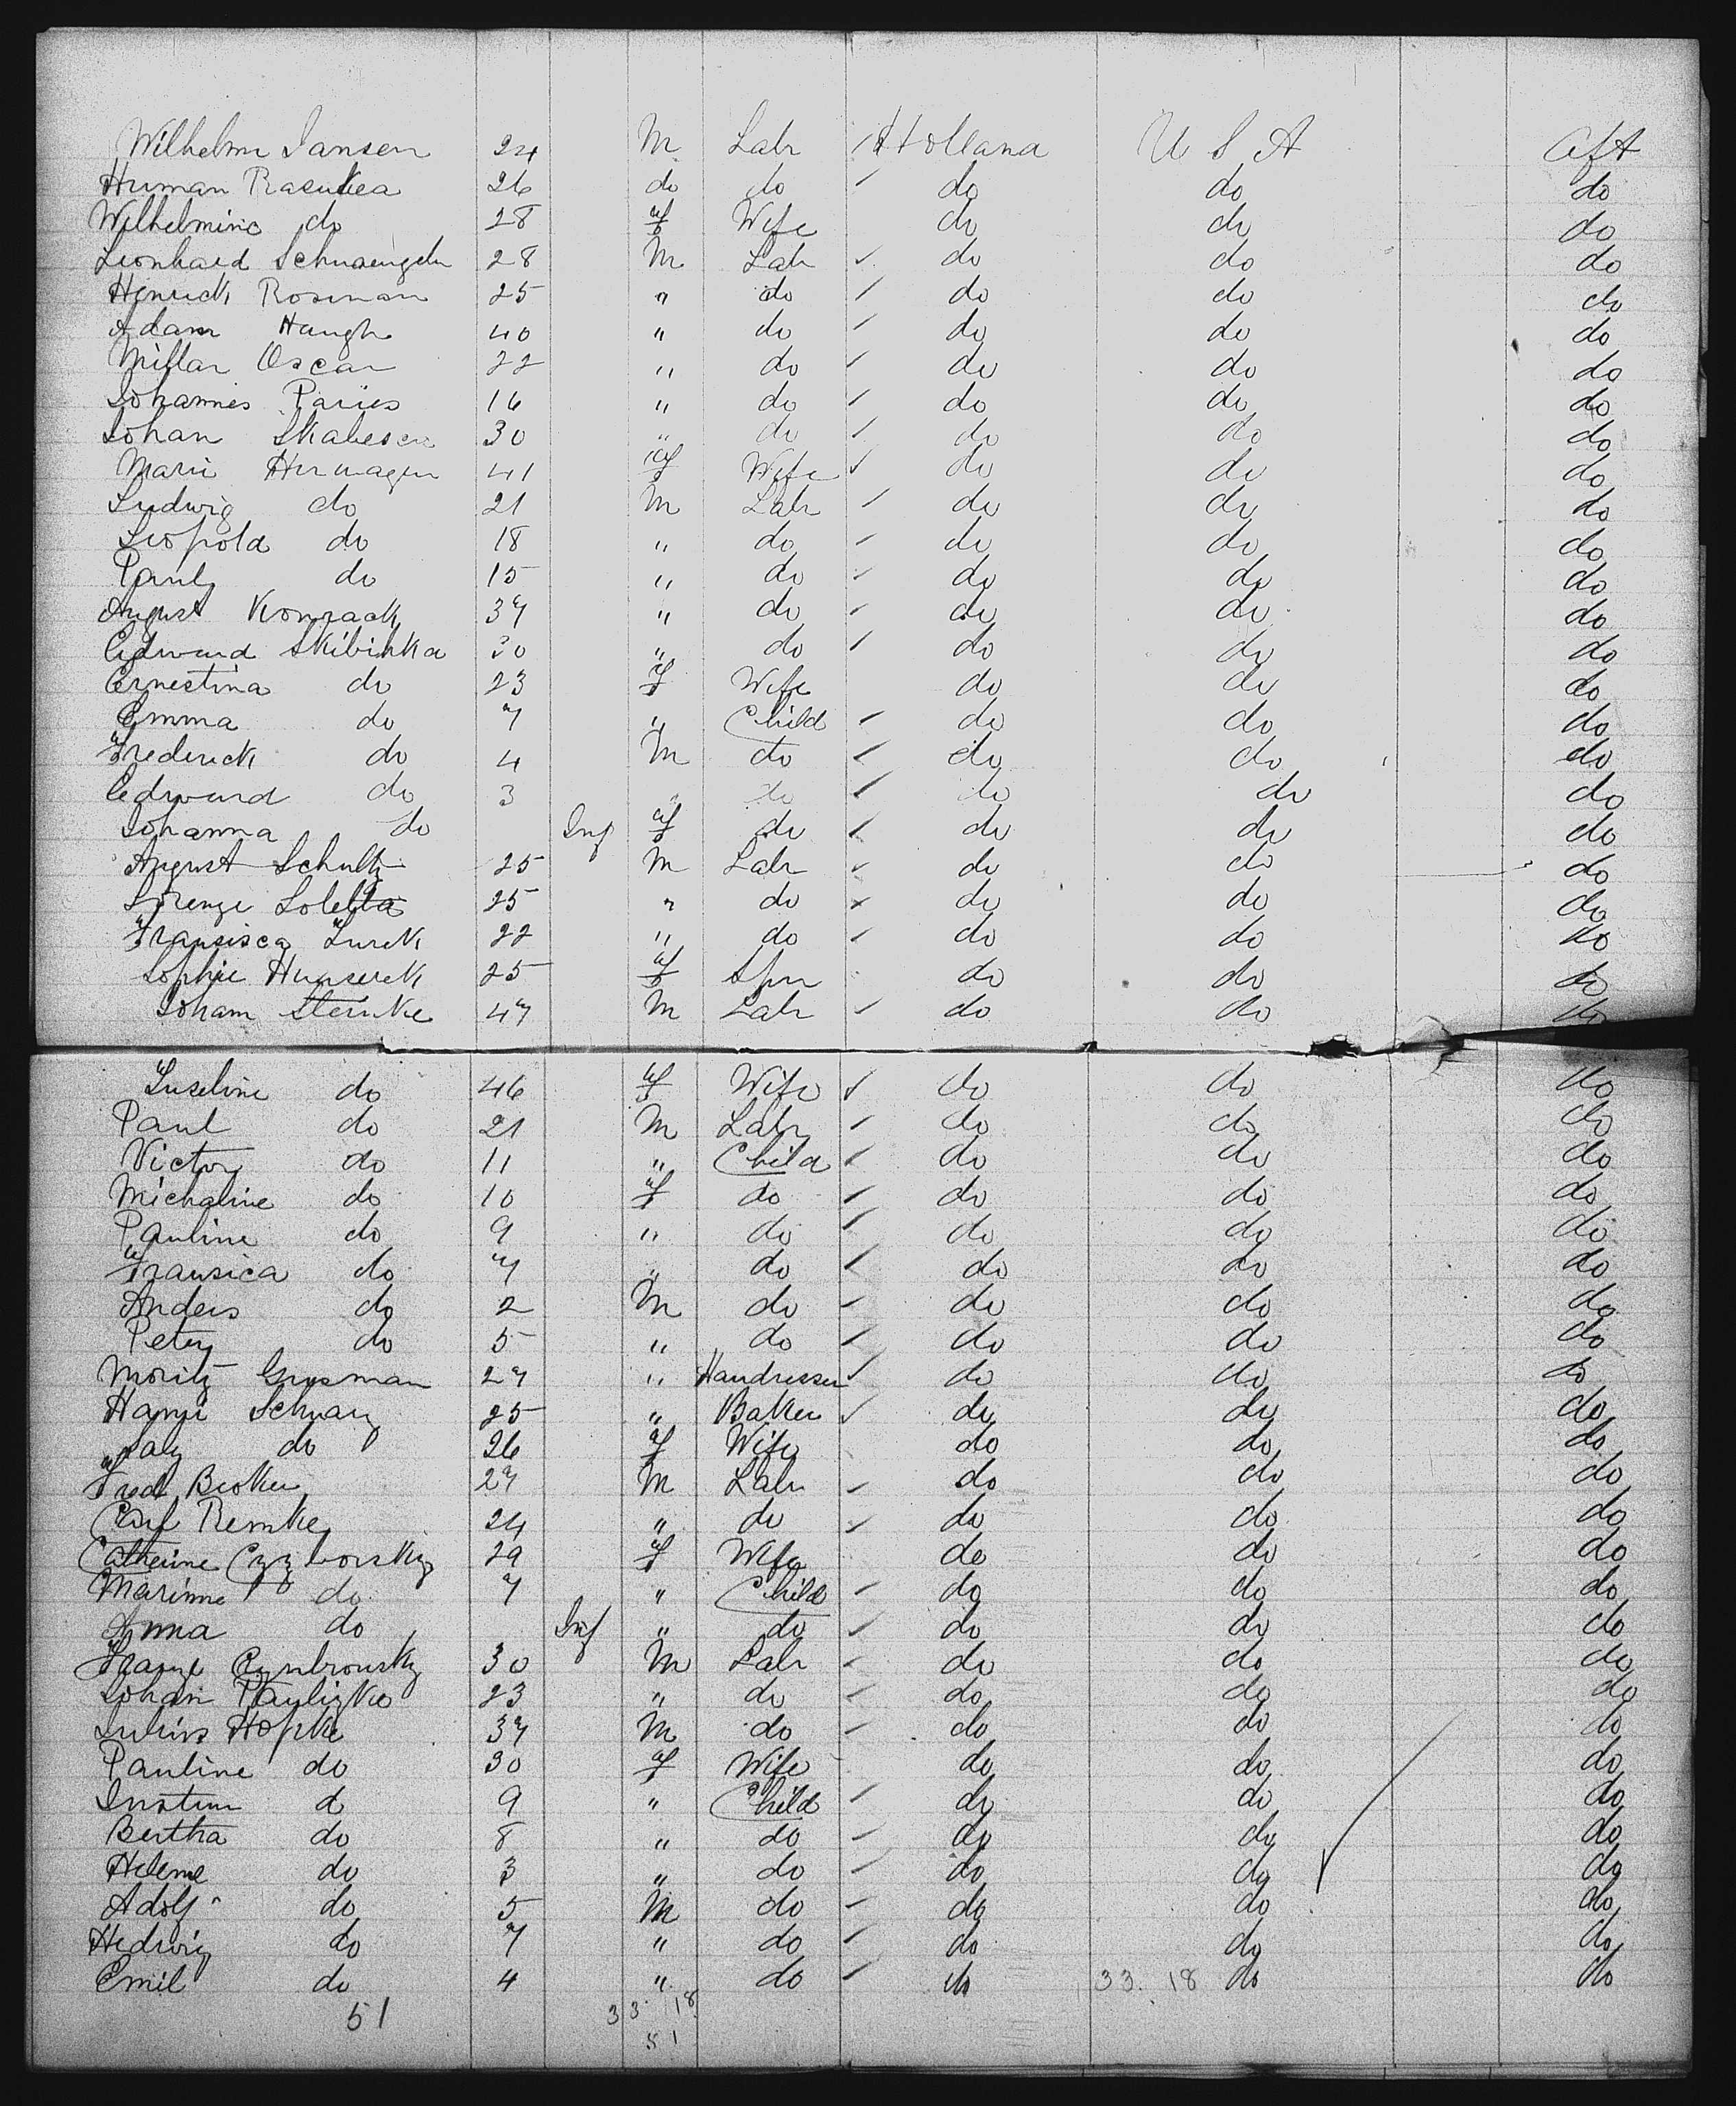 Wilhelm Jansen 24 M Labr Holland U S A Aft
Human Raenkea 26 do do do do do
Wilhelmine do 28 f Wife do do do
Leonhard Schwaengeln 28 M Labr do do do
Henrick Rosman 25 " do do do do
Adam Haugh 40 " do do do do
Millar Oscar 22 " do do do do
Johannes Paries 16 " do do do do
Johan Skalesca 30 " do do do do
Marie Hermagen 41 f Wife do do do
Ludwig do 21 M Labr do do do
Leopold do 18 " do do do do
Paul do 15 " do do do do
August Konrack 37 " do do do do
Edward Skibinka 30 " do do do do
Ernestina do 23 f Wife do do do
Emma do 7 " Child do do do
Frederick do 4 M do do do do
Edward do 3 " do do do do
Johanna do Inf f do do do do
August Schultz 25 M Labr do do do
Lorenz Loletta 25 " do do do do
Fransisca Zurek 22 " do do do do
Sophie Hunserek 25 f Spn do do do
Joham Sternke 47 M Labr do do do
Juseline do 46 f Wife do do do
Paul do 21 M Labr do do do
Victor do 11 " Child do do do
Michaline do 10 f do do do do
Pauline do 9 " do do do do
Fransica do 7 " do do do do
Anders do 2 M do do do do
Peter do 5 " do do do do
Moritz Grusman 27 " Hairdresser do do do
Hanzi Schwarz 25 " Baker do do do
do 26 f Wife do do do
Fred Broker 27 M Labr do do do
Carl Remke 24 " do do do do
Catherine Czyborsky 29 f Wife do do do
Marinne do 7 " Child do do do
Anna do Inf " do do do do
Franz Cymbrowsky 30 M Labr do do do
Johan Paulizke 23 " do do do do
Julius Hopke 37 M do do do do
Pauline do 30 f Wife do do do
Justine d 9 " Child do do do
Bertha do 8 " do do do do
Helene do 3 " do do do do
Adolf do 5 M do do do do
Hedwig do 7 " do do do do
Emil do 4 " do do 33. 18 do do
51 33. 18
51